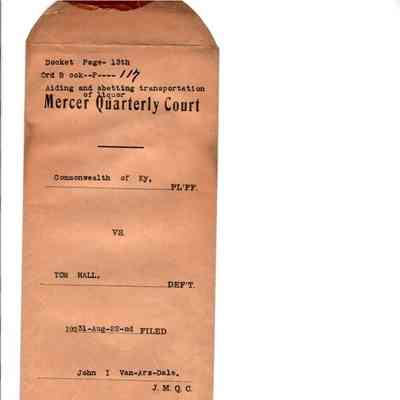 Docket Page- 13th
Ord B ook--P---- 117
Aiding and abetting transportation
of liquor
Mercer Quarterly Court
Commonwealth of Ky,
PL'FF.
VS.
TOM HALL,
DEF'T.
19231-Aug-22-nd FILED
John I Van-Ars-Dale,
J. M. Q. C.